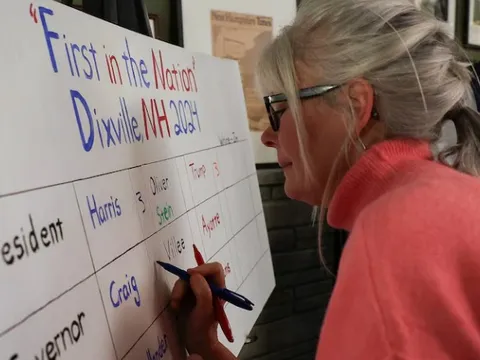 "First in the Nation"
Dixville, NH 2024
esident Harris 3 Oliver Stein Trump 3
Villee
overnor Craig Ayotte